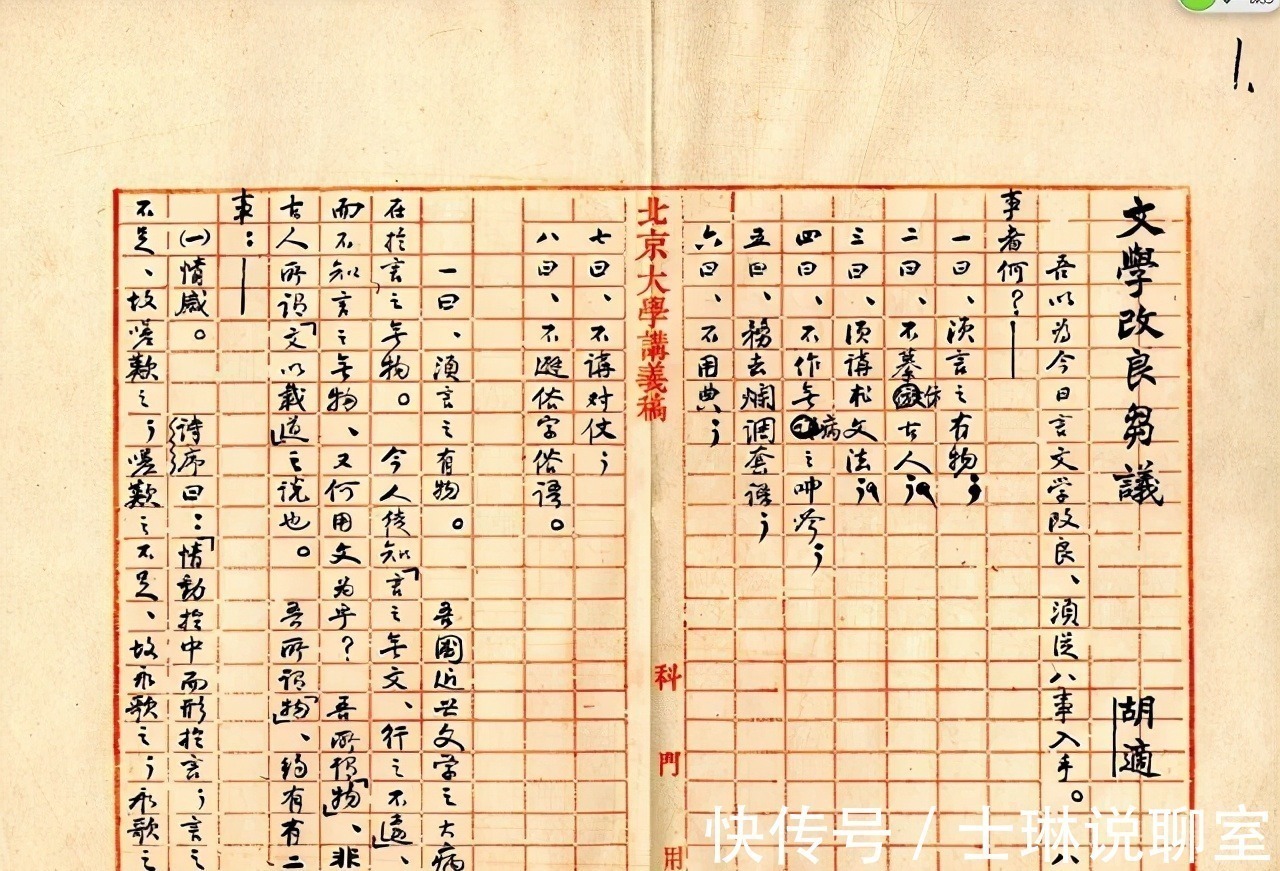 1.
文學改良芻議 胡適
吾以為今日言文学改良、須従八事入手。八
事者何？——
一曰、須言之有物；
二曰、不摹仿古人；
三曰、須講求文法；
四曰、不作无病之呻吟；
五曰、務去爛調套語；
六曰、不用典；
北京大學講義稿 科 門 用
七曰、不講对仗；
八曰、不避俗字俗語。
一曰、須言之有物。 吾國近世文学之大病
在於言之无物。 今人徒知「言之无文、行之不遠」、
而不知言之无物、又何用文为乎？ 吾所謂「物」、非
古人所謂「文以載道」之说也。 吾所謂「物」、约有有二
事：——
(一)情感。 詩序曰：「情動於中而形於言；言之
不足、故嗟歎之；嗟歎之不足、故永歌之；永歌之
快传号 / 士琳说聊室